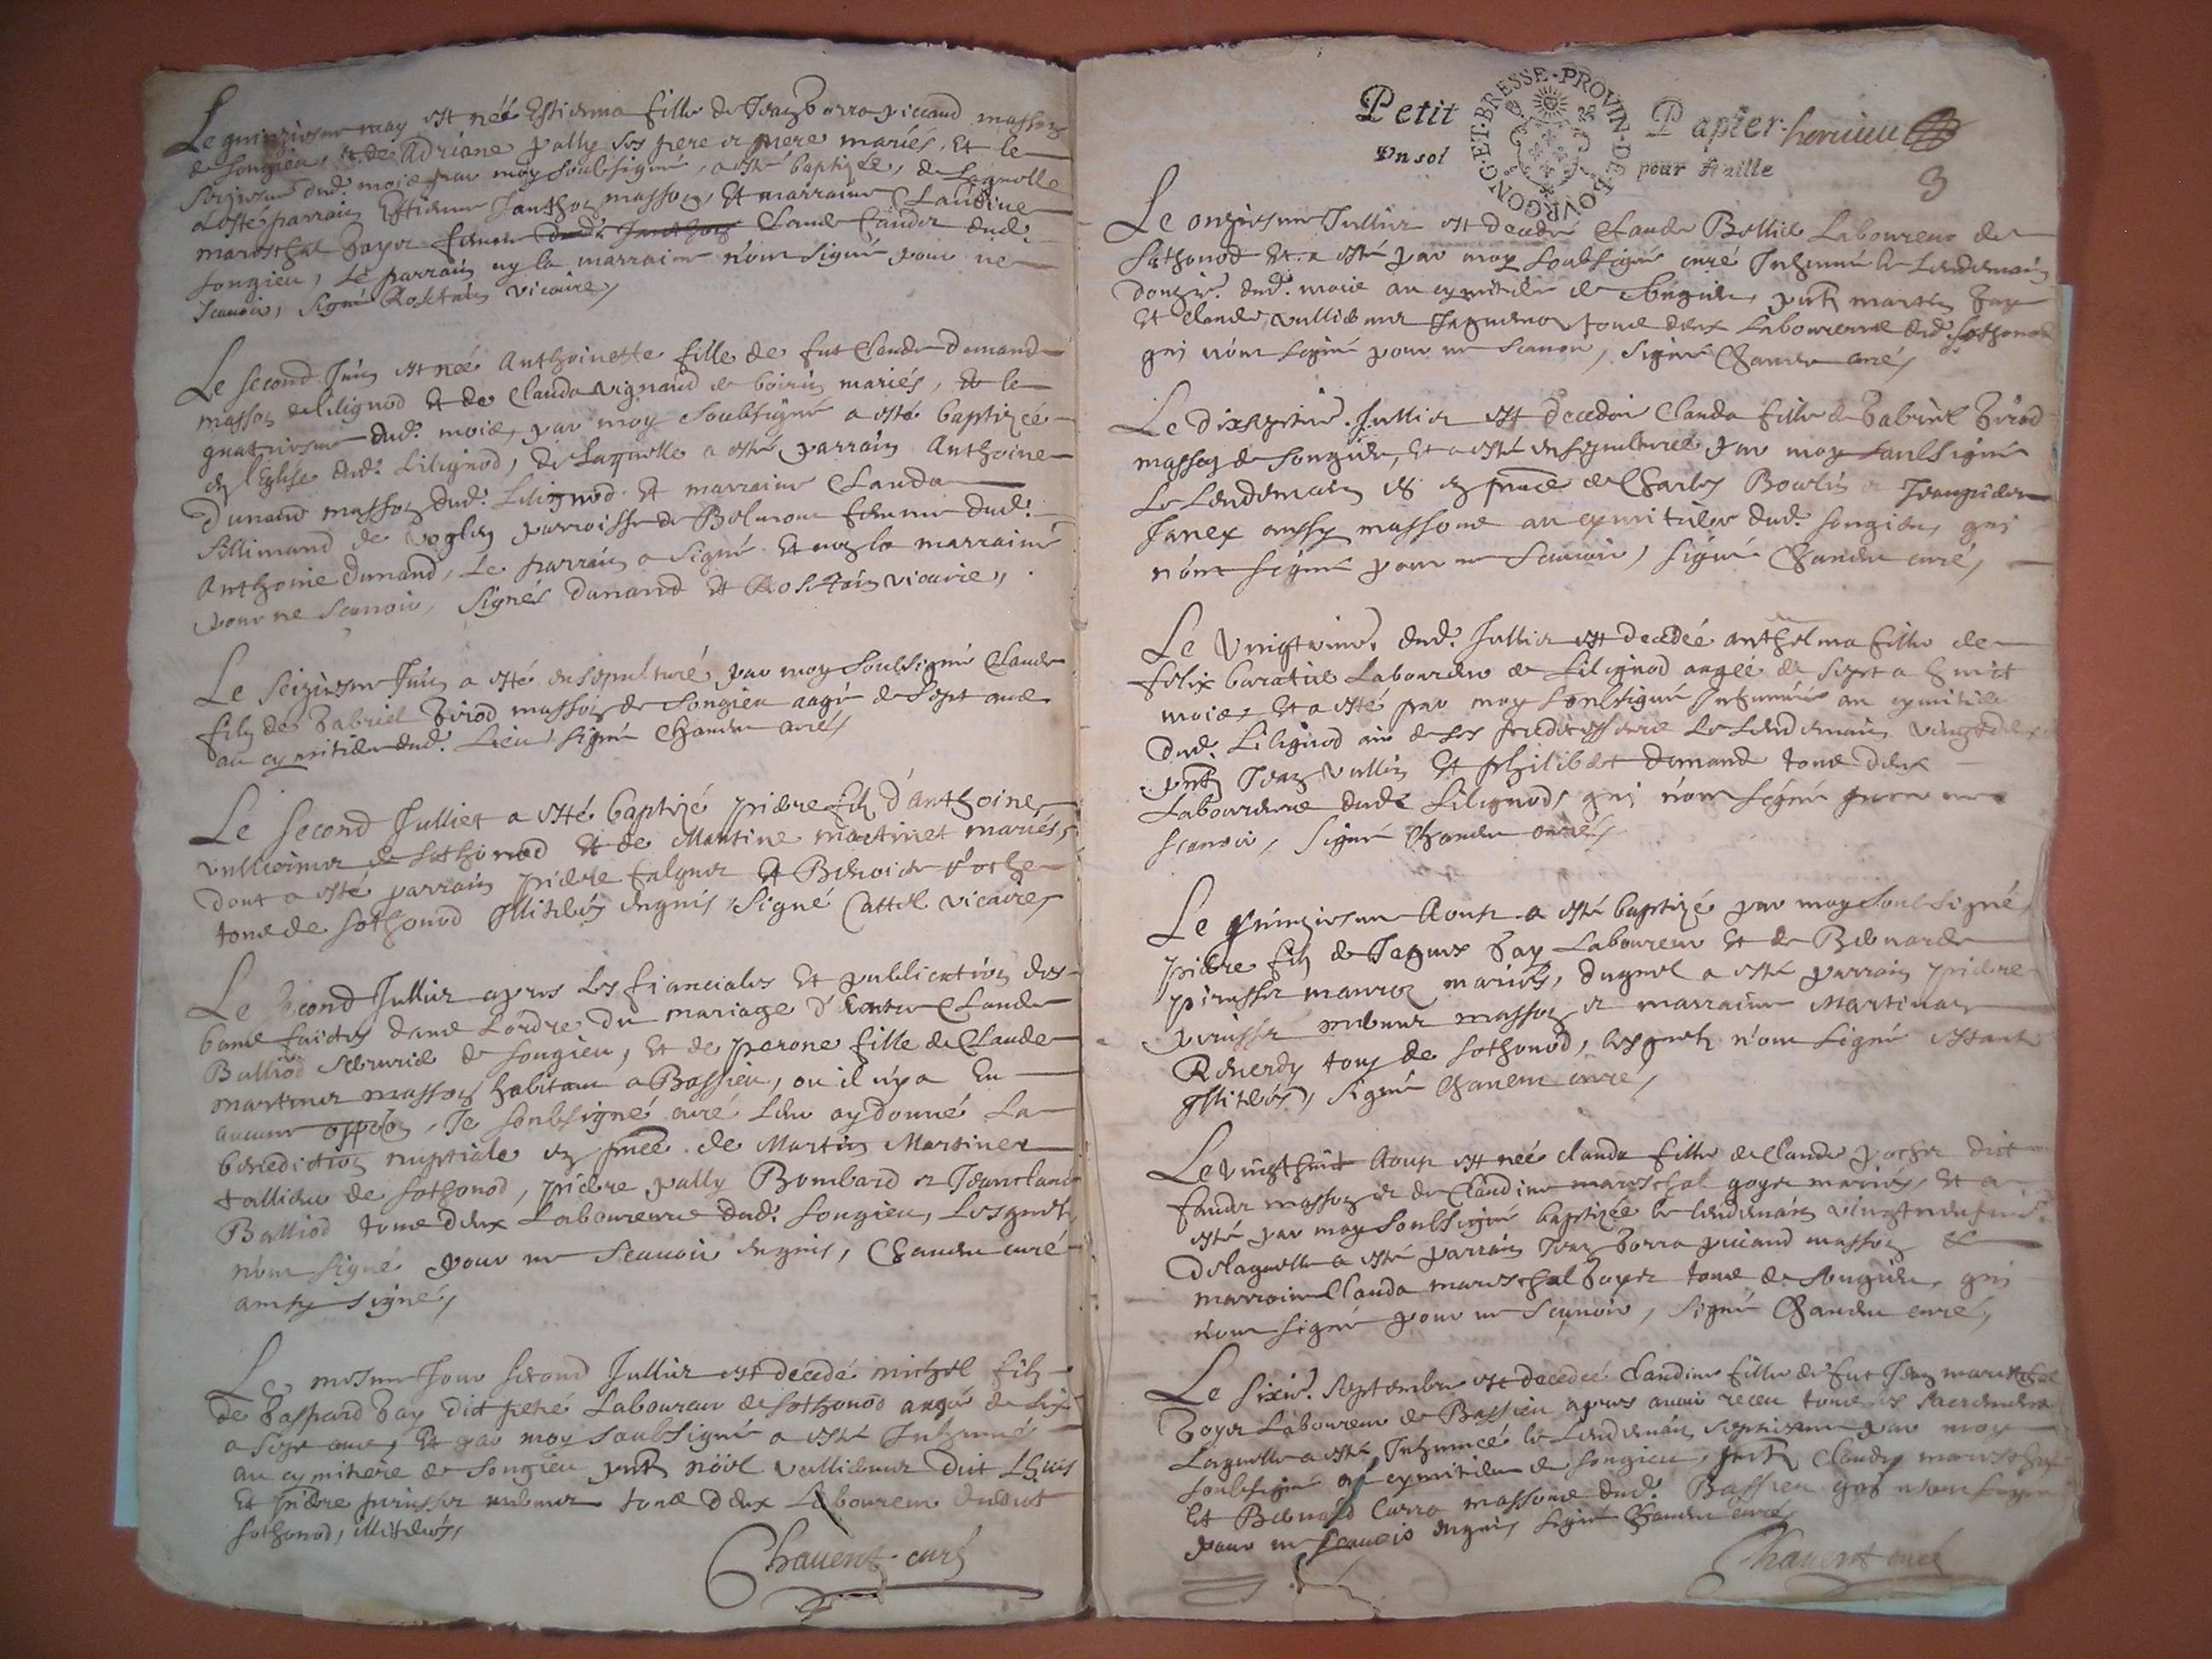 Le quinziesme may est née Estienna fille de Jean Borra piccand masson
de Songieu, et de Adriane pally ses pere et mere mariés, Et le
seiziesme dud. mois par moy soubsigné, a esté baptizée, de laquelle
a esté parrain Estienne Janthon masson, Et marraine Claudine
mareschal Goyet femme dud. Janthon Claude Cander dud.
songieu, Le parrain ny la marraine n'ont signé pour ne
scauoir, signé Rostain vicaire,
Le second Juin est née Anthoinette fille de fut Claude dunand
masson de Lilignod Et de Clauda vignaud de boirin mariés, Et le
quatriesme dud. mois, par moy soubsigné a esté baptizée
en l'Eglise dud. Lilignod, de Laquelle a esté parrain Anthoine
Dunand masson dud. Lilignod Et marraine Clauda
Sillimand de voglen parroisse de Belmont femme dud.
Anthoine dunand, Le parrain a signé Et non la marraine
pour ne scauoir, signés Dunand Et Rostain vicaire,
Le seiziesme Juin a esté ensepulturé par moy soubsigné Claude
filz de Gabriel Girod masson de Songieu aagé de sept ans
au cymitiere dud. Lieu signé Chauent curé,
Le second Julliet a esté baptizé pierre filz d'anthoine
vulliermet de sothonod Et de Martine martinet mariés,
dont a esté parrain pierre falquet Et Benoite poche
tous de sothonod Illiterés enquis, signé Cattel vicaire,
Le second Julliet apres les fiancialles Et publication des
bans faictes dans L'ordre du mariage d'Entre Claude
Balliod serrurier de songieu, Et de perone fille de Claude
martinet masson habitant a Bassieu, ou il n'y a Eu
aucune oppon, Je soubsigné curé Leur ay donné La
benediction nuptiale en pnce de Martin Martinet
tallieur de sothonod, pierre pally Bombard et Jeanclaude
Balliod tous deux Laboureurs dud. songieu, Lesquels
n'ont signé pour ne scauoir enquis, Chauent curé
ainsy signé,
Le mesme Jour second Julliet est decedé michel filz
de Gaspard Gay dict peté Laboureur de sothonod aagé de six
a sept ans, Et par moy soubsigné a esté Inhumé
au cymitiere de songieu pnts nöel vulliermet dict
Et pierre perusset meusnier tous deux Laboureurs dudict
sothonod, illiterés,
Chauent curé
Petit Papier
Vn sol pour fueille
BOVRGONG·ET·BRESSE·PROVIN·DE
3
Le onziesme Julliet est decedé Claude Bollie Laboureur de
Sothonod Et a esté par moy soubsigné curé Inhumé le Lendemain
douzie. dud. mois au cymitiere de Songieu, pnts martin Gay
Et Claude vulliermet Jaquemet tous deux Laboureurs dud. sothonod
qui n'ont signé pour ne scauoir, signé Chauent curé,
Le dixseptie. Julliet est decedée Clauda fille de Gabriel Girod
masson de Songieu, Et a esté ensepulturée par moy soubsigné
Le Lendemain 18 en pnce de Charles Boulin et Jeanpierre
Janex aussy massons au cymitiere dud. songieu, qui
n'ont signé pour ne scauoir, signé Chauent curé,
Le vingtiesme. dud. Julliet est decedée anthelma fille de
felix baratie Laboureur de Lilignod aagée de sept a huict
mois, Et a esté par moy soubsigné Inhumée au cymitiere
dud. Lilignod de ses predecesseurs Le Lendemain
pnts Jean vullin Et philibert dunand tous deux
Laboureurs dud. Lilignod, qui n'ont signé pour ne
scauoir, signé Chauent curé,
Le quinziesme Aoust a esté baptizé par moy soubsigné
pierre filz de Jaques Gay Laboureur Et de Bernarde
perusset mauroz mariés, duquel a esté parrain pierre
perusset meusnier masson et marraine Martina
Reuerdy tous de sothonod, lesquels n'ont signé estant
Illiterés, signé Chauent curé,
Le vingthuit Aoust est née clauda fille de Claude pochet dict
fander masson et de Claudine mareschal goyet mariés, Et a
esté par moy soubsigné baptizée le lendemain vingtneufuie.
de laquelle a esté parrain Jean borra piccand masson &
marraine Clauda mareschal Goyet tous de Songieu, qui
n'ont signé pour ne scauoir, signé Chauent curé,
Le sixie. Septembre est decedée Claudine fille de fut Jean mareschal
Goyet Laboureur de Bassieu apres auoir receu tous les sacrements
Laquelle a esté Inhumée le Lendemain septiesme par moy
soubsigné au cymitiere de songieu, pnts Claude mareschal
Et Bernard Carra massons dud. Bassieu qui n'ont signé
pour ne scauoir enquis, signé Chauent curé,
Chauent curé